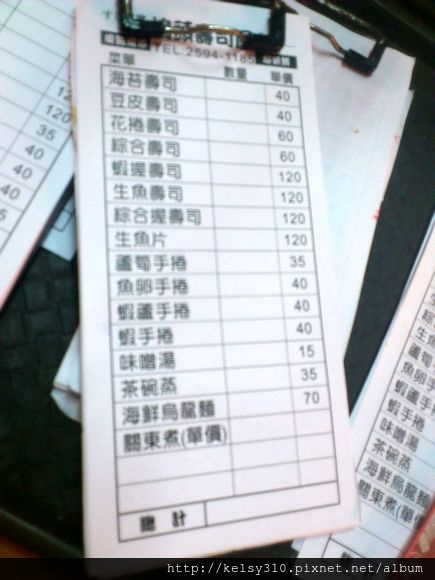 壽司
TEL:2594-1185
菜單 數量 單價
海苔壽司 40
豆皮壽司 40
花捲壽司 60
綜合壽司 60
蝦握壽司 120
生魚壽司 120
綜合握壽司 120
生魚片 120
蘆筍手捲 35
魚卵手捲 40
蝦蘆手捲 40
蝦手捲 40
味噌湯 15
茶碗蒸 35
海鮮烏龍麵 70
關東煮(單價)
總計
120
35
40
40
40
魚卵手
蝦蘆手捲
蝦手捲
味噌湯
茶碗蒸
海鮮烏龍
關東煮(單價
http://kelsy310.pixnet.net/album